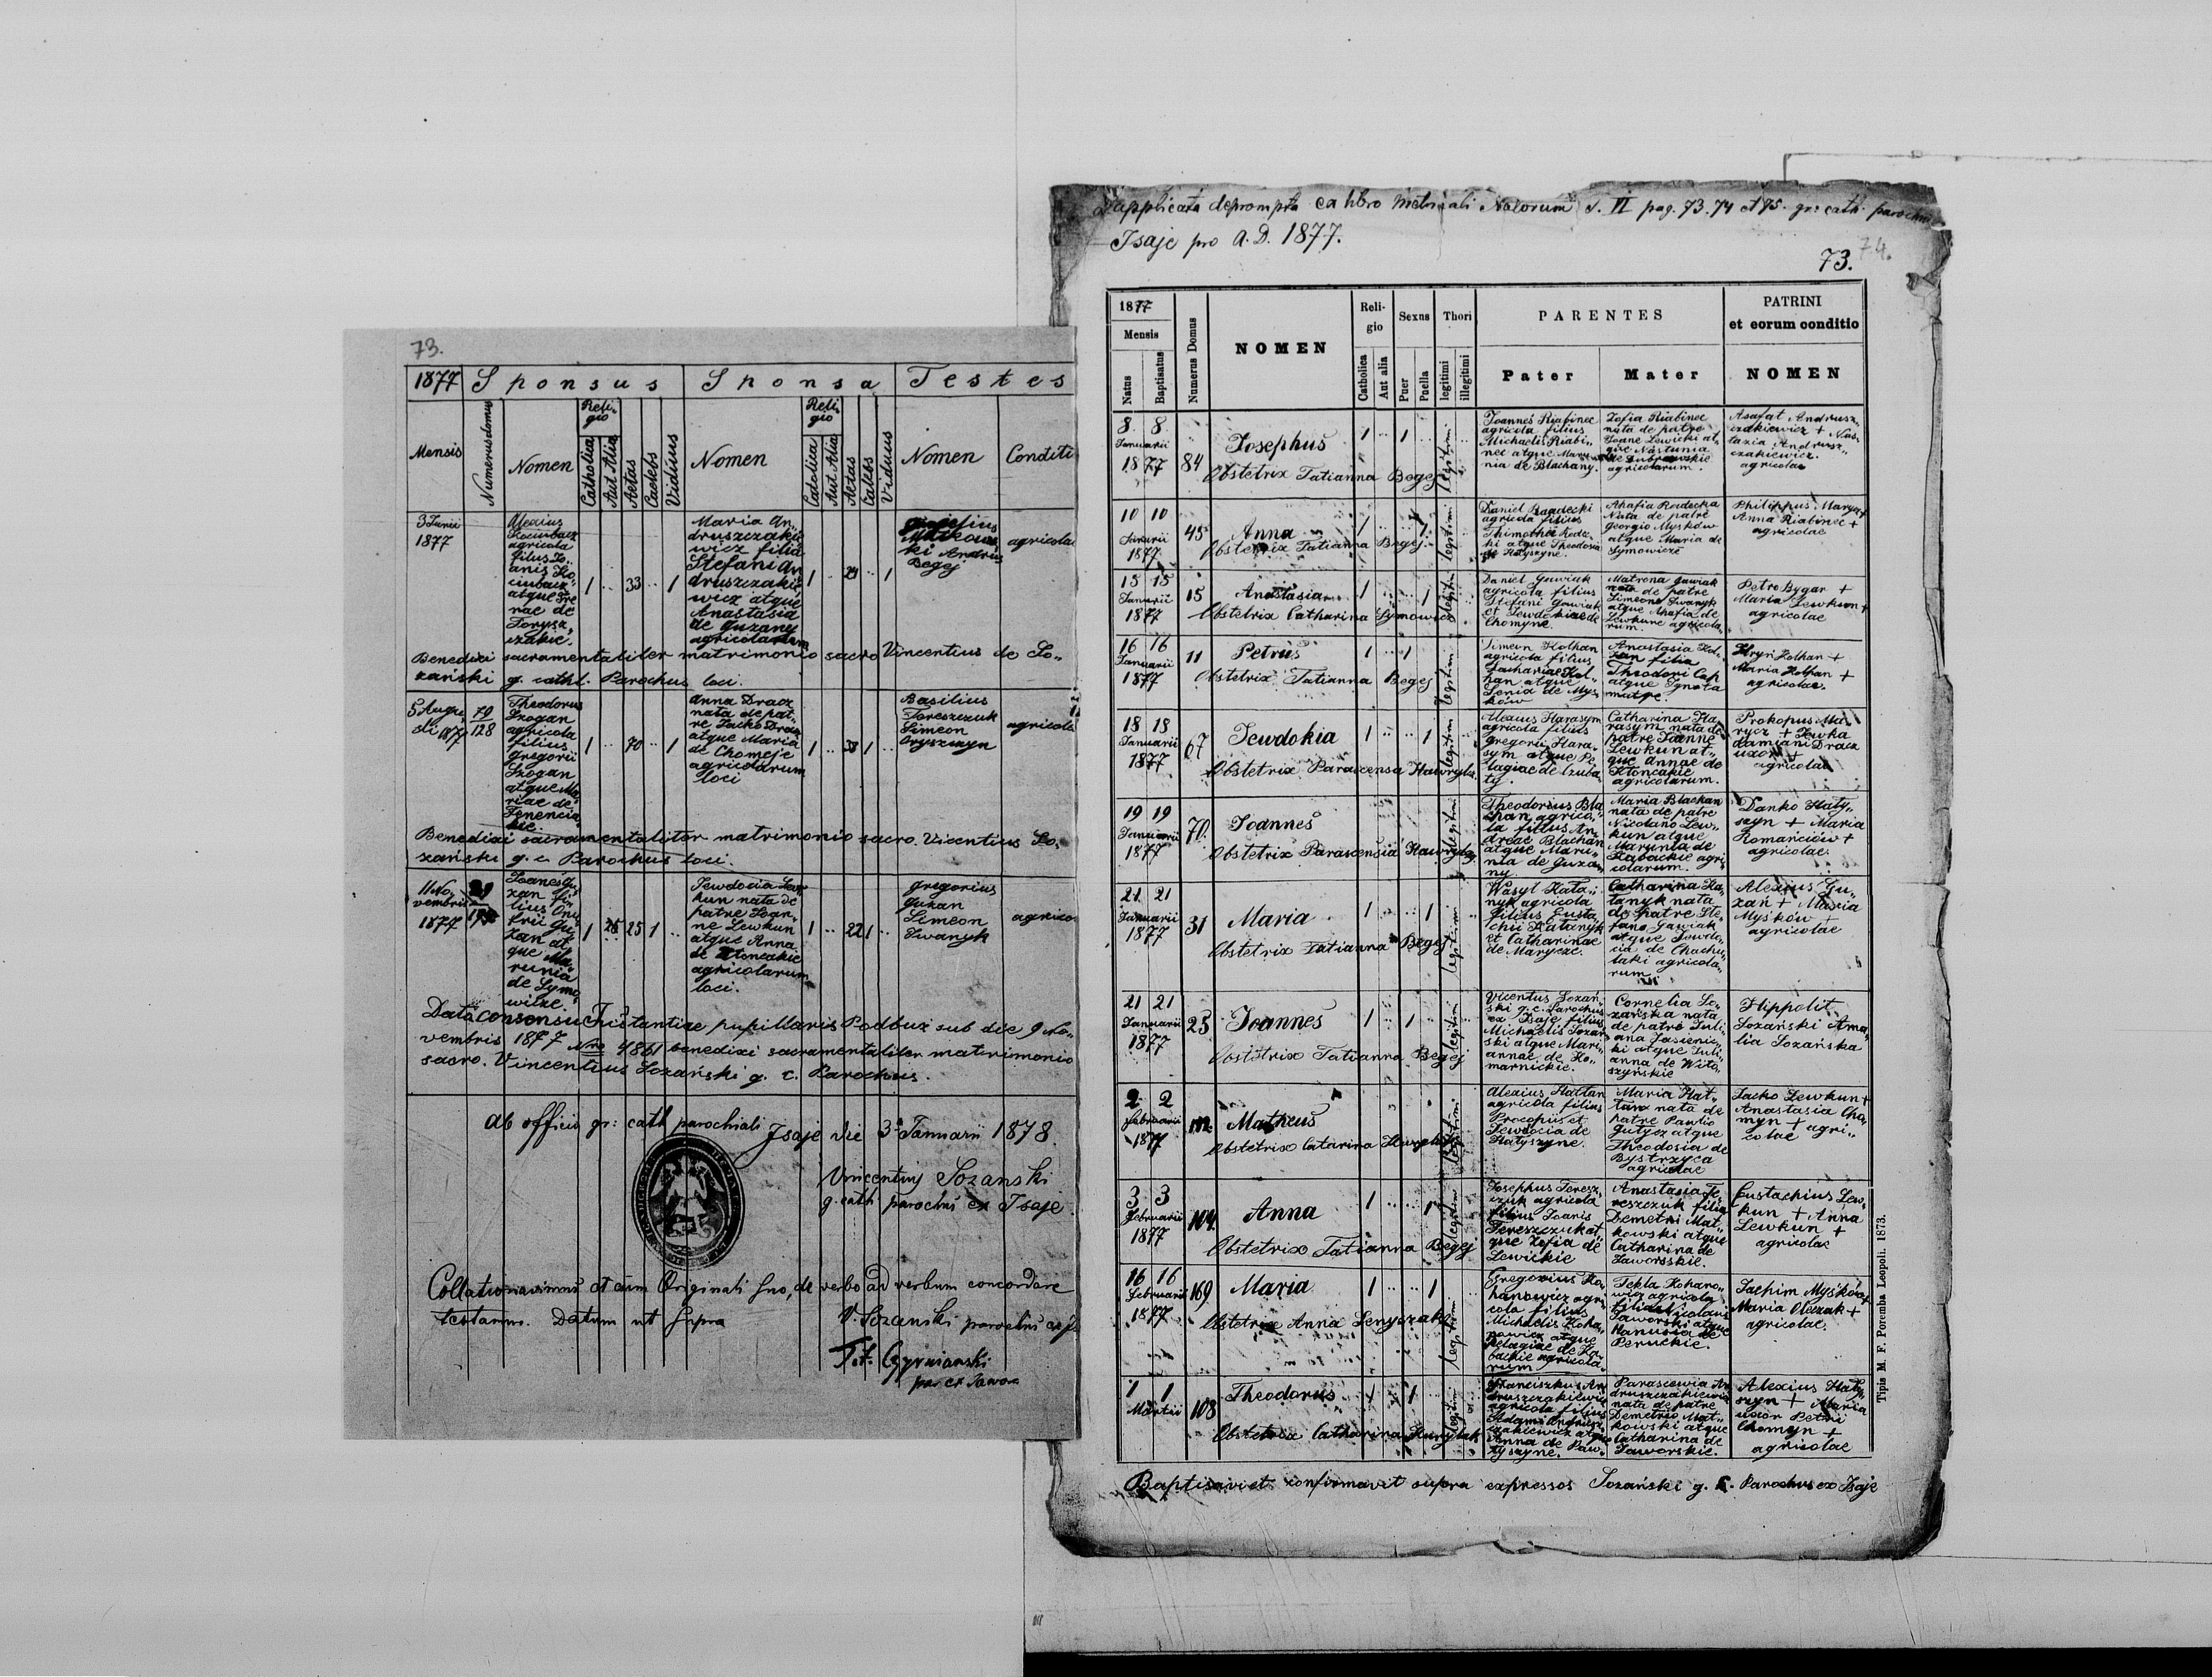 73.
1877 Sponsus Sponsa Testes
Mensis Numerus domus Nomen Religio Catholica Aut Alia Aetas Caelebs Viduus Nomen Religio Catolica Aut Alia Aetas Caelebs Viduus Nomen Conditi
3 Junii
1877
Alexius
agricola
filius Jo„
anis Ko„
ciubacz
atque Ire„
nae de
Torysz„
czakie.
1 .. 33 .. 1
Maria An„
druszczakie„
wicz filia
Stefani An„
druszczakie„
wicz atque
Anastasia
de Guzany
agricolarum
1 .. 24 .. 1
Matkows„
ki Andrius
Begej
agricolae
Benedixi sacramentaliter matrimonio sacro Vincentius de So„
zański g. cathl. Parochus loci.
5 Augu„
sti 1877
79
128
Theodorus
Szogan
agricola
filius
Gregorii
Szogan
atque Ma„
riae de
Fenencia„
kie.
1 .. 70 .. 1
Anna Dracz
nata de pat„
re Jacko Dracz
atque Maria
de Chomeje
agricolarum
loci
1 .. 38 1
Basilius
Tereszczuk
Simeon
Oryszczyn
agricolae
Benedixi sacramentaliter matrimonio sacro. Vicentius So„
zański g. c. Parochus loci.
11 No„
vembris
1877
Joanes Gu„
zan fi„
lius Onu„
frii Gu„
zan at„
que Ma„
runia
de Symo„
wicze.
1 25 1 ..
Jewdocia Lew„
kun nata de
patre Joan„
ne Lewkun
atque Anna
de Ktoncakie
agricolarum
loci.
1 .. 22 1 ..
Gregorius
Guzan
Simeon
Iwanyk
agrico
Data consensu Instantiae pupillaris Podbuz sub die 9 No„
vembris 1877 Nro 4861 benedixi sacramentaliter matrimonio
sacro. Vincentius Sozański g. c. Parochus.
Ab officio gr: cath parochiali Isaje die 3 Januarii 1878.
Vincentius Sozanski
g. cath parochus ex Isaje.
Collationavimus et cum Originali suo, de verbo ad verbum concordare
testamur. Datum ut supra
V. Sozanski parochus ex
Duplicata deprompta ex libro Metricali Natorum T. VI pag. 73. 74 et 75. gr: cath. parochiae
Isaje pro A. D. 1877.
73. 74.
1877
Mensis
Natus Baptisatus Numerus Domus NOMEN Religio Catholica Aut alia Sexus Puer Puella Thori legitimi illegitimi PARENTES Pater Mater PATRINI et eorum conditio NOMEN
8 8
Januarii
1877 84
Josephus
Obstetrix Tatianna Begej
legitimi
Joannes Riabinec
agricola filius
Michaelis Riabi„
nec atque Maru„
nia de Blachany.
Zofia Riabinec
nata de patre
Joane Lewicki at„
que Nastunia
de Dubrowskie
agricolarum.
Asafat Andrusz„
czakiewicz + Nas„
tazia Andrusz„
czakiewicz.
agricolae
10 10
Januarii
1877 45
Anna
Obstetrix Tatianna Begej.
legitimi
Daniel Radecki
agricola filius
Thimothei Radec„
ki atque Theodosia
de Hatyszyne.
Ahafia Radecka
Nata de patre
Georgio Mysków
atque Maria de
Symowicze
Philippus Marycz +
Anna Riabinec +
agricolae
15 15
Januarii
1877 15
Anastasia
Obstetrix Catharina Symowicz
legitimi
Daniel Gawiak
agricola filius
Stefani Gawiak
et Jewdokiae de
Chomyne.
Matrona Gawiak
nata de patre
Simeone Iwanyk
atque Ahafia de
Lewkune agricola„
rum.
Petro Bygar +
Maria Lewkun +
agricolae
16 16
Januarii
1877 11
Petrus
Obstetrix Tatianna Begej
legitimi
Simeon Holhan
agricola filius
Zachariae Hol„
han atque
Senia de Mys„
ków
Anastasia Hol„
han filia
Theodori Cap
atque Ignota
matre.
Hryń Holhan +
Maria Holhan +
agricolae.
18 18
Januarii
1877 67
Jewdokia
Obstetrix Parascensa Hawrylez.
legitimi
Alexius Harasym
agricola filius
Gregorii Hara„
sym atque Pe„
lagiae de Czuba„
ty.
Catharina Ha„
rasym nata de
patre Joanne
Lewkun at„
que Annae de
Ktoncakie
agricolarum.
Prokopus Ma„
rycz + Jewka
Damiani Dracz
uxor +
agricolae
19 19
Januarii
1877 70.
Joannes
Obstetrix Parascensia Hawrylez
legitimi
Theodorus Bla„
chan agrico„
la filius An„
dreae Blachan
atque Maru„
nia de Guza„
ny.
Maria Blachan
nata de patre
Nicolano Lew„
kun atque
Marunia de
Kabackie agri„
colarum.
Danko Haty„
szyn + Maria
Romańciów +
agricolae.
21 21
Januarii
1877 31
Maria
Obstetrix Tatianna Begej
legitimi
Wasyl Hata„
nyk agricola
filius Eusta„
chii Hatanyk
et Catharinae
de Marycze.
Catharina Ha„
tanyk nata
de patre Ste„
fano Gawiak
atque Jewdo„
cia de Chachu„
laki agricola„
rum
Alexius Gu„
zań + Maria
Myśków +
agricolae
21 21
Januarii
1877 23
Joannes
Obstetrix Tatianna Begej
legitimi
Vicentus Sozań„
ski g. c. Parochus
ex Isaje filius
Michaelis Sozań„
ski atque Mari„
annae de Ko„
marnickie.
Cornelia So„
zańska nata
de patre Juli„
ana Jasienic„
ki atque Juli„
anna de Wito„
szyńskie
Hippolit
Sozański Ama„
lia Sozańska
2 2
Februarii
1877 112.
Matheus
Obstetrix Catarina
legitimi
Alexius Hattan
agricola filius
Procophii et
Jewdocia de
Hatyszyne.
Maria Hat„
tan nata de
patre Pantio
Gutycz atque
Theodosia de
Bystrzyca
agricolae
Jacko Lewkun +
Anastasia Cho„
myn + agri„
colae
3 3
Februarii
1877 104.
Anna
Obstetrix Tatianna Begej
legitimi
Josephus Teresz„
czuk agricola
filius Joanis
Tereszczuk at„
que Zofia de
Lewickie
Anastasia Te„
reszczuk filia
Demetri Mat„
kowski atque
Catharina de
Jaworsskie.
Eustachius Lew„
kun + Anna
Lewkun +
agricolae
16 16
Februarii
1877 169
Maria
Obstetrix Anna Senyczak
legitimi
Gregorius Ko„
hanowicz agri„
cola filius
Michaelis Koha„
nowicz atque
Pelagiae de Ka„
backie agricola„
rum
Tekla Kohano„
wicz agricola
filia Nicolaus
Jaworski atque
Hanusia de
Peruckie.
Jachim Myśków +
Maria Oleczak +
agricolae.
1 1
Martii 108
Theodorus
Obstetrix Catharina
legitimi
Franciszkus An„
druszczakiewicz
agricola filius
Adami Andrusz„
czakiewicz atque
Anna de Haw„
ryszyne.
Parascewia An„
druszczakiewicz
nata de patre
Demetrio Mat„
kowski atque
Catharina de
Jaworskie.
Alexius Haty„
szyn + Maria
uxor Petri
Chomyn +
agricolae
Baptisavit et confirmavit supra expressos Sozański g. c. Parochus ex Isaje
Tipis M. F. Poremba Leopoli. 1873.